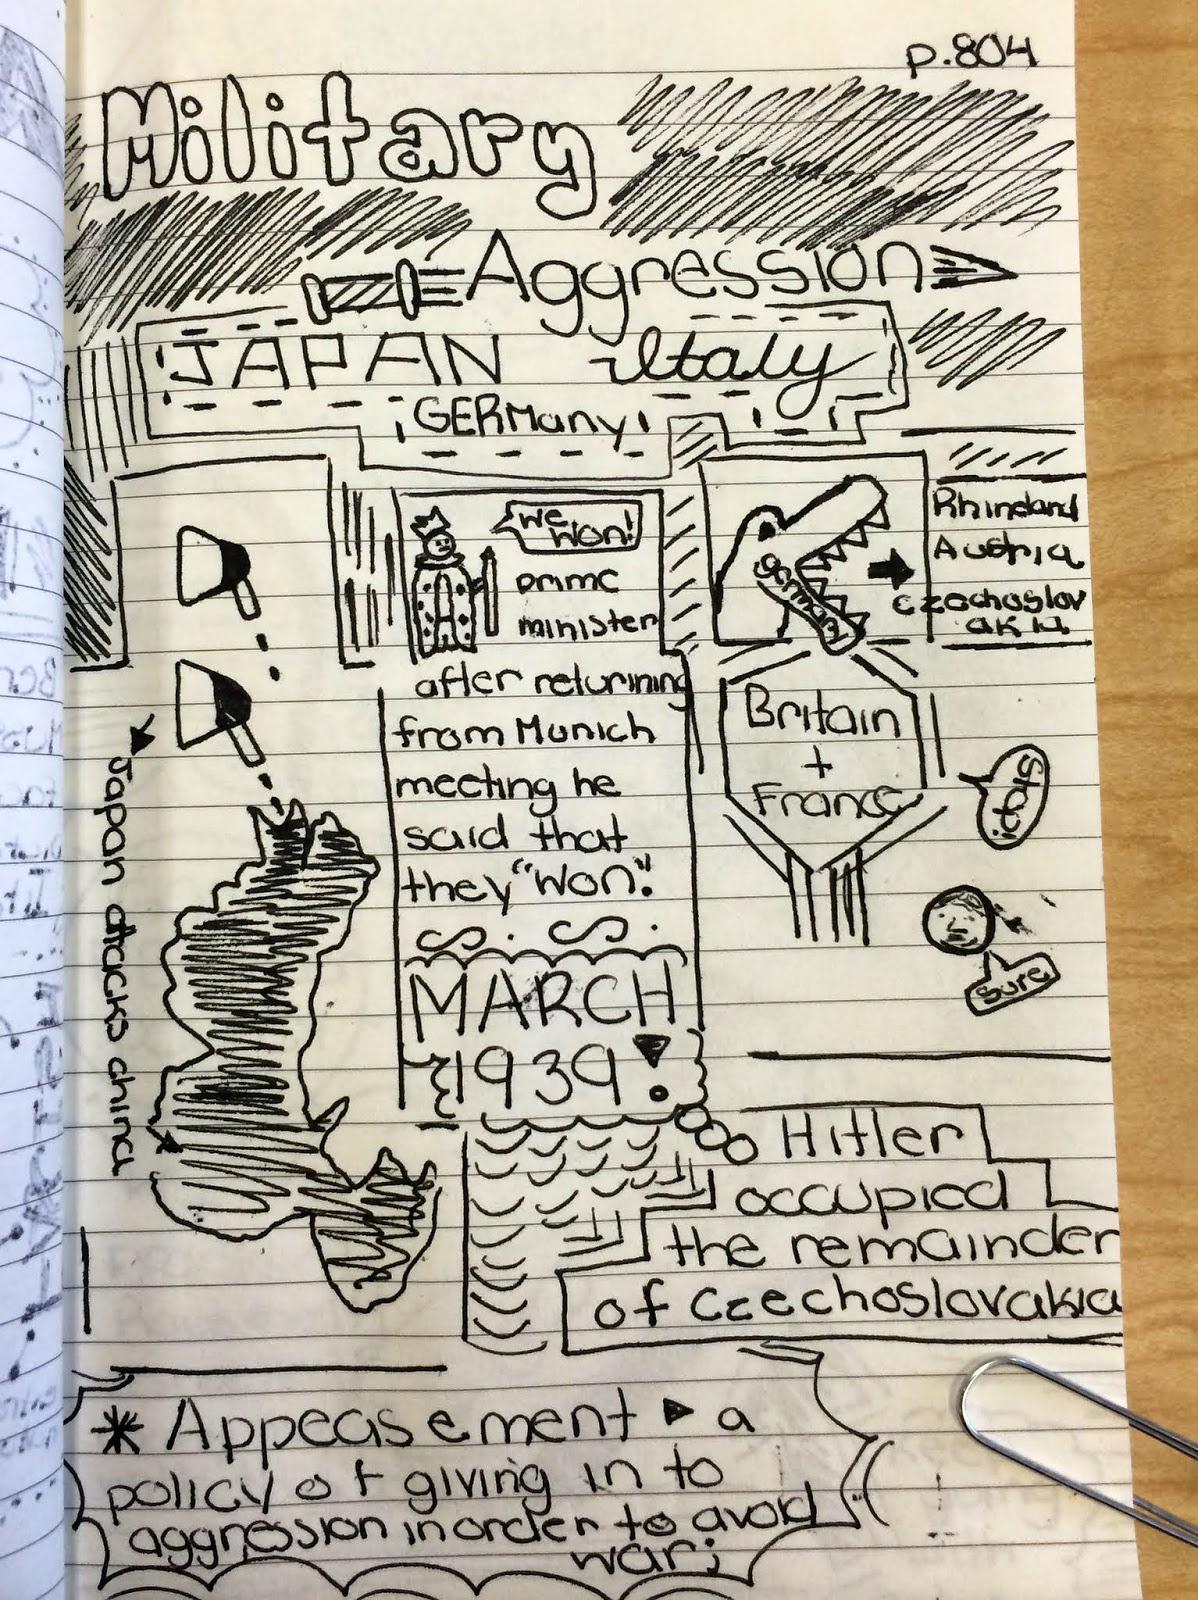 p.804
Military
Aggression
JAPAN Italy
GERMany
we
won!
prime
minister
after returining
from Munich
meeting he
said that
they "won".
MARCH
1939!
Germany
Rhineland
Austria
Czochoslov
akia
Britain
+
France
stop!
sure
Japan attacks china
Hitler
occupied
the remainder
of Czechoslovakia
* Appeasement ▸ a
policy of giving in to
aggression in order to avoid
war;